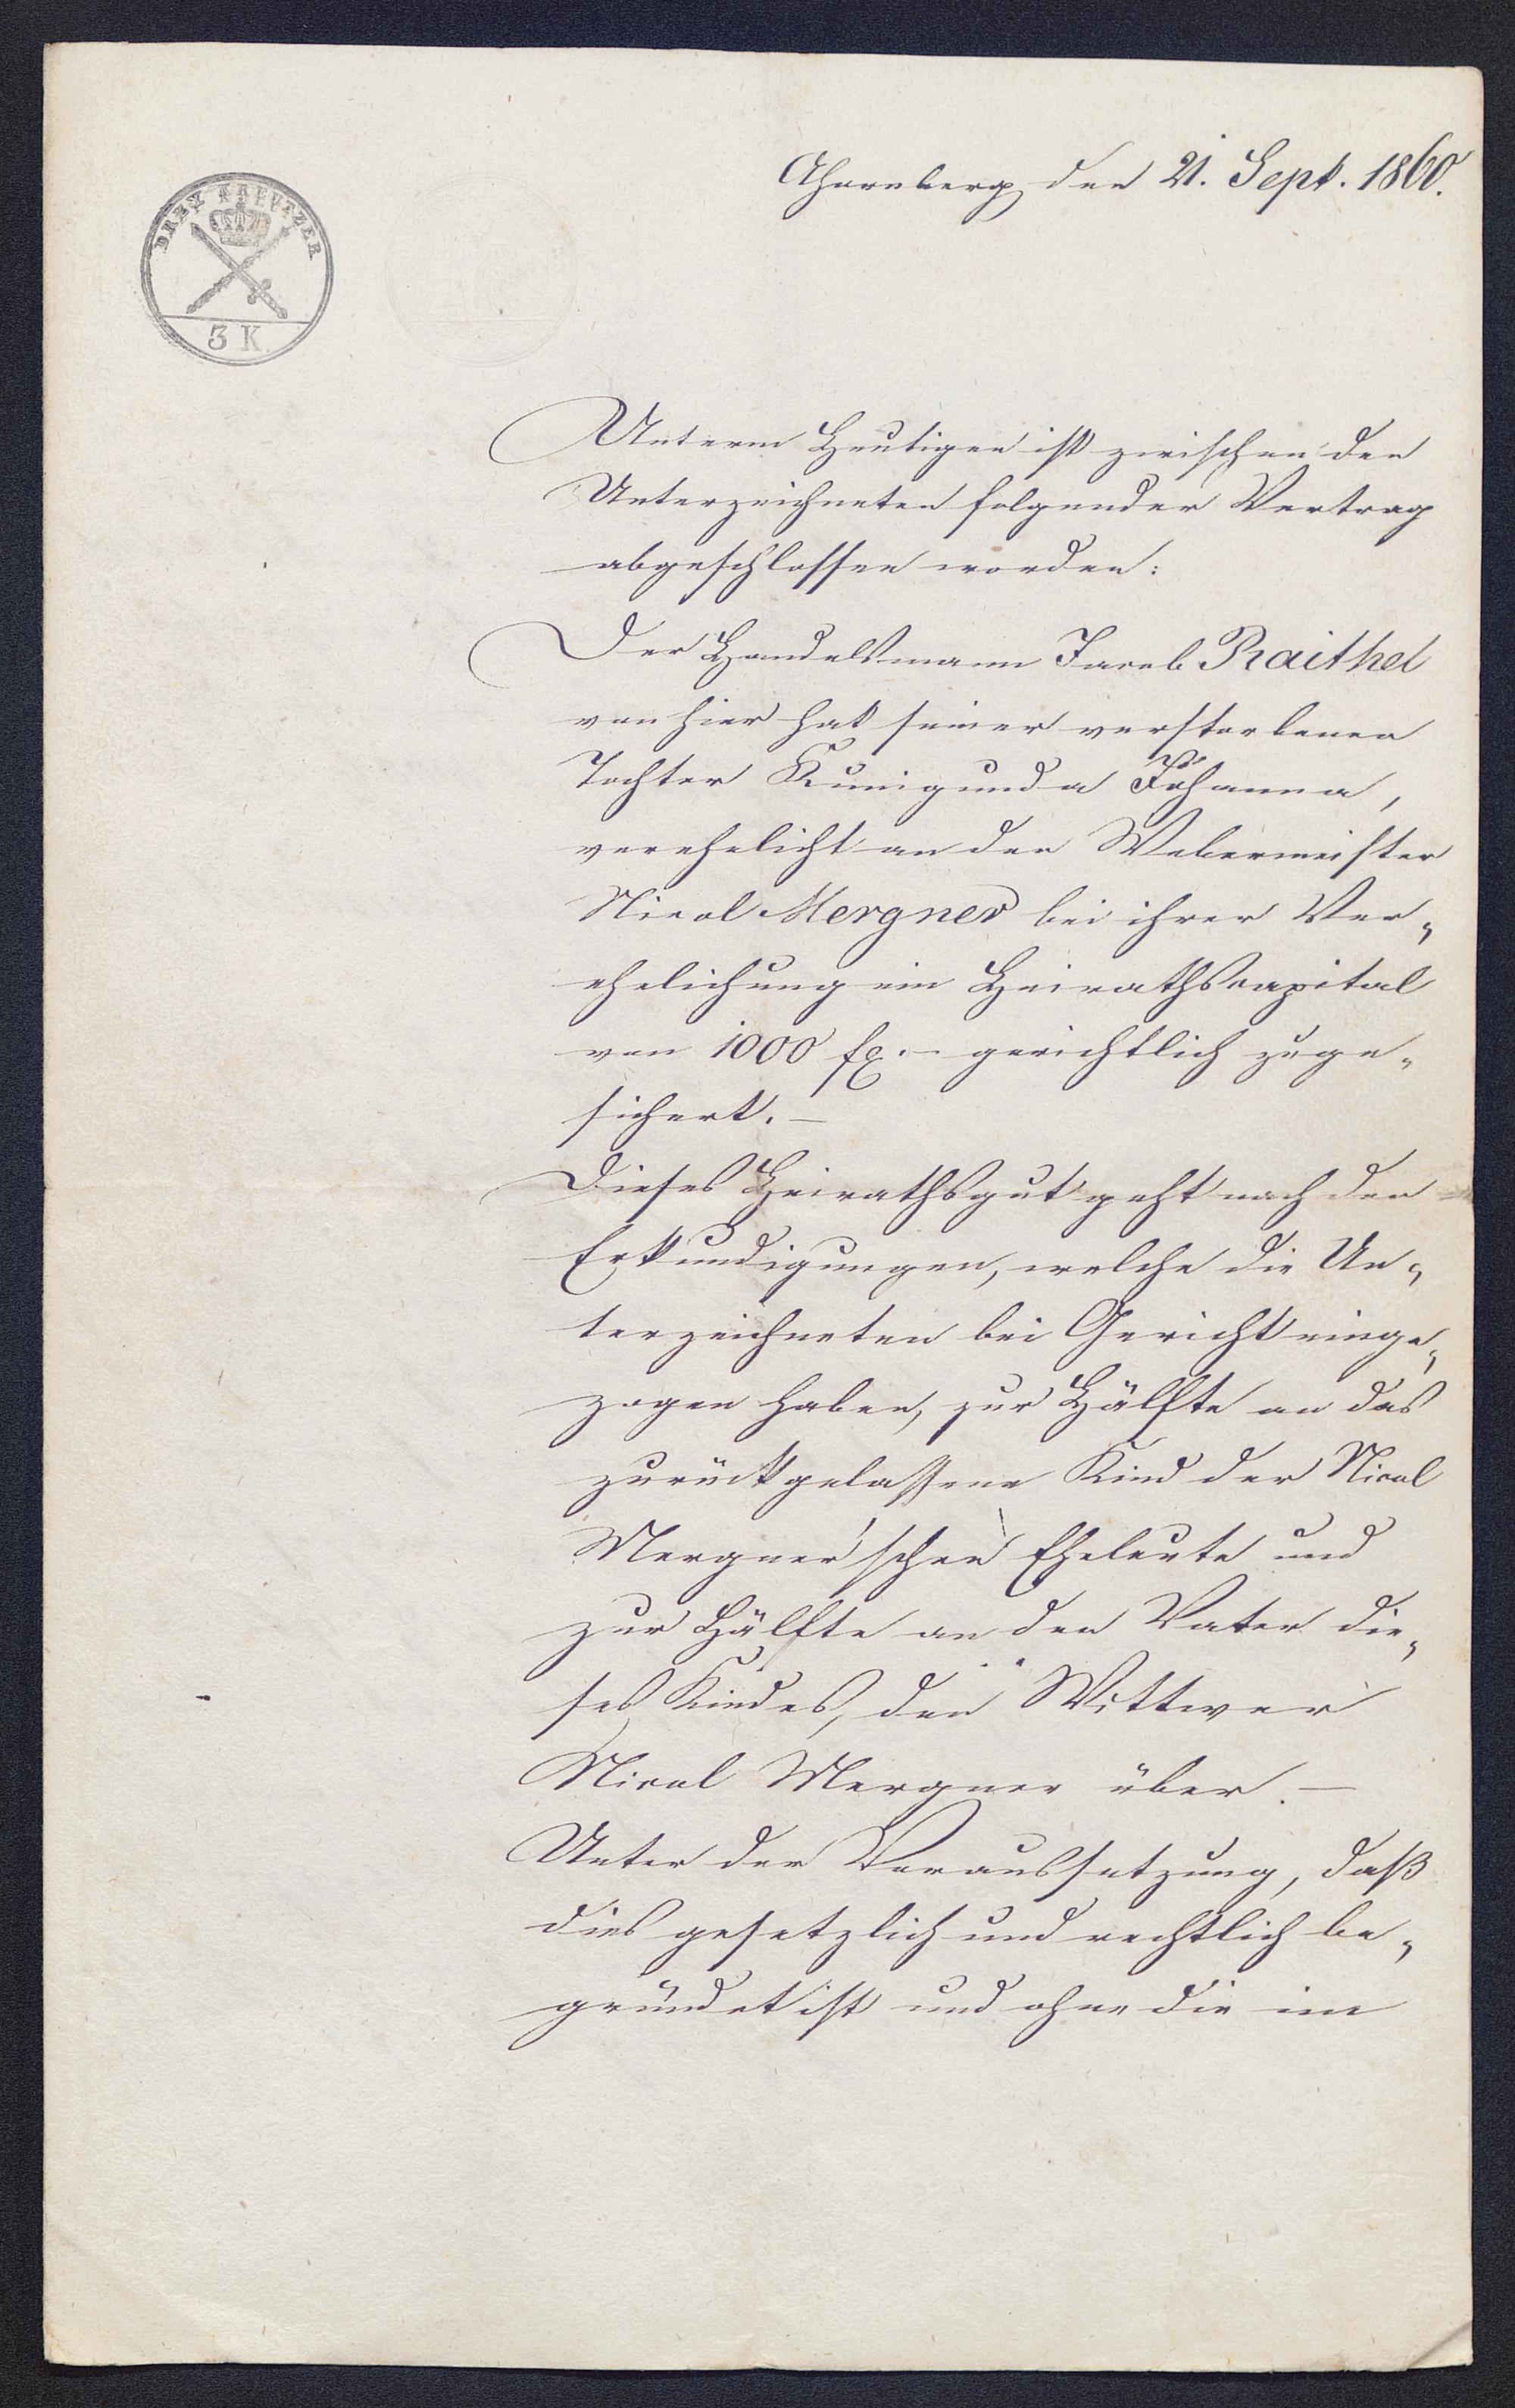 Ahornberg den 21. Sept. 1860.
DREY KREUTZER
3 K.
Unterm Heutigen ist zwischen den
Unterzeichneten folgender Vertrag
abgeschlossen worden:
Der Handelsmann Jacob Raithel
von hier hat seiner verstorbenen
Tochter Kunigunda Johanna,
verehelicht an den Webermeister
Nicol Mergner bei ihrer Ver„
ehelichung ein Heirathscapital
von 1000 fl. – gerichtlich zuge„
sichert. –
Dieses Heirathsgut geht nach den
Erkundigungen, welche die Un„
terzeichneten bei Gericht einge„
zogen haben, zur Hälfte an das
zurückgelassene Kind der Nicol
Mergner'schen Eheleute und
zur Hälfte an den Vater die„
ses Kindes, den Wittwer
Nicol Mergner über. –
Unter der Voraussetzung, daß
dies gesetzlich und rechtlich be„
gründet ist und ohne die im